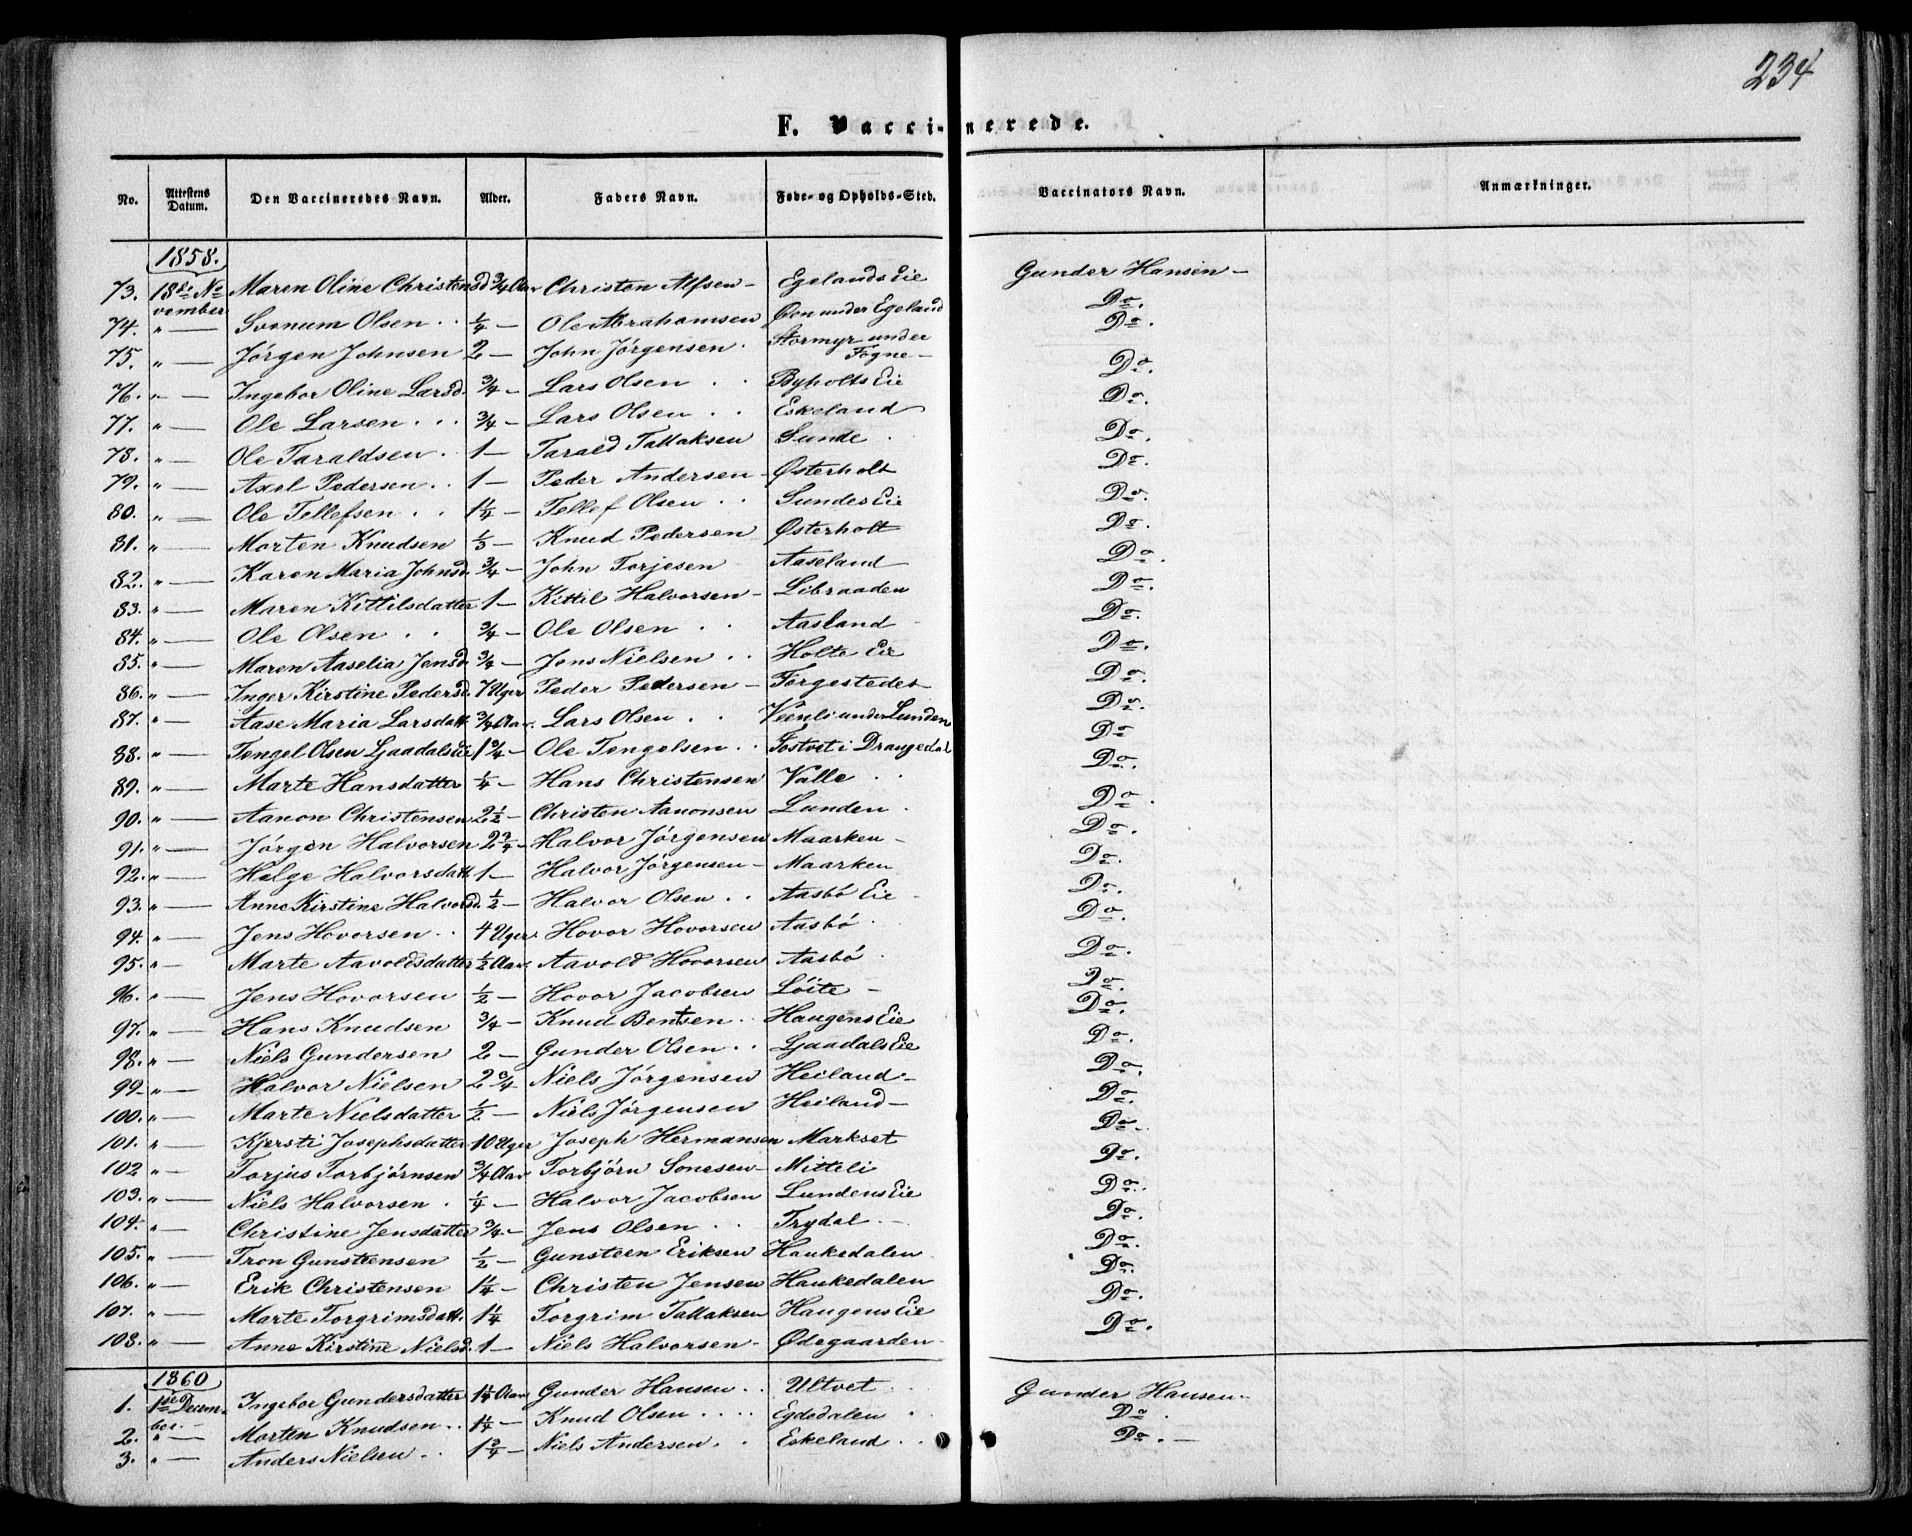 234
F. Vaccinerede.
No. Attestens Datum. Den Vaccineredes Navn. Alder. Faders Navn. Føde- og Opholds-Sted. Vaccinators Navn. Anmærkninger.
1858.
73. 18de No- Maren Oline Christensd 3/4 Aar Christen Alfsen - Egelands Eie Gunder Hansen -
vember
74. " — Svenum Olsen . . 1/4 — Ole Abrahamsen Øen under Egeland Do.
75. " — Jørgen Johnsen 2 — John Jørgensen . Stormyr under Fogne - Do.
76. " — Ingebor Oline Larsd. 3/4 — Lars Olsen . . Byholts Eie Do.
77. " — Ole Larsen . . . 3/4 — Lars Olsen . . Eskeland Do.
78. " — Ole Taraldsen . 1 — Tarald Tallaksen Sunde . Do.
79. " — Axel Pedersen . . 1 — Peder Andersen - Østerholt Do.
80. " — Ole Tellefsen . . 1 1/4 — Tellef Olsen . . Sundes Eie Do.
81. " — Morten Knudsen 1/3 — Knud Pedersen Østerholt Do.
82. " — Karen Maria Johnsd. 3/4 — John Torjesen Aaseland Do.
83. " — Maren Kittilsdatter 1 — Kittil Halvorsen - Libraaden Do.
84. " — Ole Olsen . . 3/4 — Ole Olsen . . Aasland Do.
85. " — Maren Aaselia Jensd. 3/4 — Jens Nielsen . . Holte Eie Do.
86. " — Inger Kirstine Pedersd. 7 Uger Peder Pedersen - Torgestedet Do.
87. " — Aase Maria Larsdatt. 3/4 Aar. Lars Olsen . . Veenli under Lunden Do.
88. " — Tengel Olsen Ljaadals Eie 1 3/4 — Ole Tengelsen . . Tostvet i Drangedal Do
89. " — Marte Hansdatter 1/4 — Hans Christensen Valle . . Do.
90. " — Aanon Christensen 2 1/2 — Christen Aanonsen Lunden . Do.
91. " — Jørgen Halvorsen 2 3/4 — Halvor Jørgensen Maarken - Do.
92. " — Helge Halvorsdatt. 1 — Halvor Jørgensen - Maarken Do.
93. " — Anne Kirstine Halvorsd. 1/2 — Halvor Olsen . . Aasbø Eie Do.
94. " — Jens Hovorsen . . 4 Uger. Hovor Hovorsen Aasbø . Do.
95. " — Marte Aavoldsdatter 1/2 Aar. Aavold Hovorsen Aasbø . Do.
96. " — Jens Hovorsen 1/2 — Hovor Jacobsen Løite - Do.
97. " — Hans Knudsen 3/4 — Knud Bentsen . Haugens Eie Do.
98. " — Niels Gundersen 2 — Gunder Olsen . . Ljaadals Eie Do.
99. " — Halvor Nielsen 2 3/4 Niels Jørgensen Heiland - Do.
100. " — Marte Nielsdatter 1/2 — Niels Jørgensen Heiland - Do.
101. " — Kjersti Josephsdatter 10 Uger Joseph Hermansen Markset Do.
102 " — Torjus Torbjørnsen 3/4 Aar Torbjørn Sonesen - Mitteli Do.
103. " — Niels Halvorsen . 1/4 — Halvor Jacobsen Lundens Eie Do.
104. " — Christine Jensdatter 3/4 — Jens Olsen . . Trydal . Do.
105. " — Tron Gunsteensen 1/2 — Gunsteen Eriksen Haukedalen Do.
106. " — Erik Christensen 1 1/4 — Christen Jensen Haukedalen Do.
107. " — Marte Torgrimsdatt. 1 1/4 Torgrim Tallaksen Haugens Eie Do.
108. " — Anne Kirstine Nielsd. 1 — Niels Halvorsen - Ødegaarden - Do.
1860
1. 1ste Decem- Ingebor Gundersdatter 1 1/4 Aar Gunder Hansen . . Ultvet . Gunder Hansen -
ber
2. " — Morten Knudsen . . 1 1/4 — Knud Olsen . . . . Egdedalen . Do.
3. " — Anders Nielsen . . 1 3/4 — Niels Andersen . . Eskeland . . Do. -